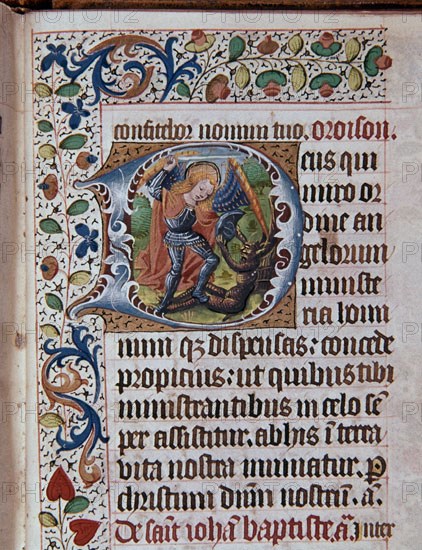 confitebor nomini tuo. Oroison.
Deus qui
miro or
dine an
gelorum
ministe
ria homi
num qz dispensas: concede
propicius: ut quibus tibi
ministrantibus in celo sē
per assistitur. ab his ī terra
vita nostra muniatur. P
christum dn̄m nostrū. a.
De saīt iohā baptiste. ā. Inter